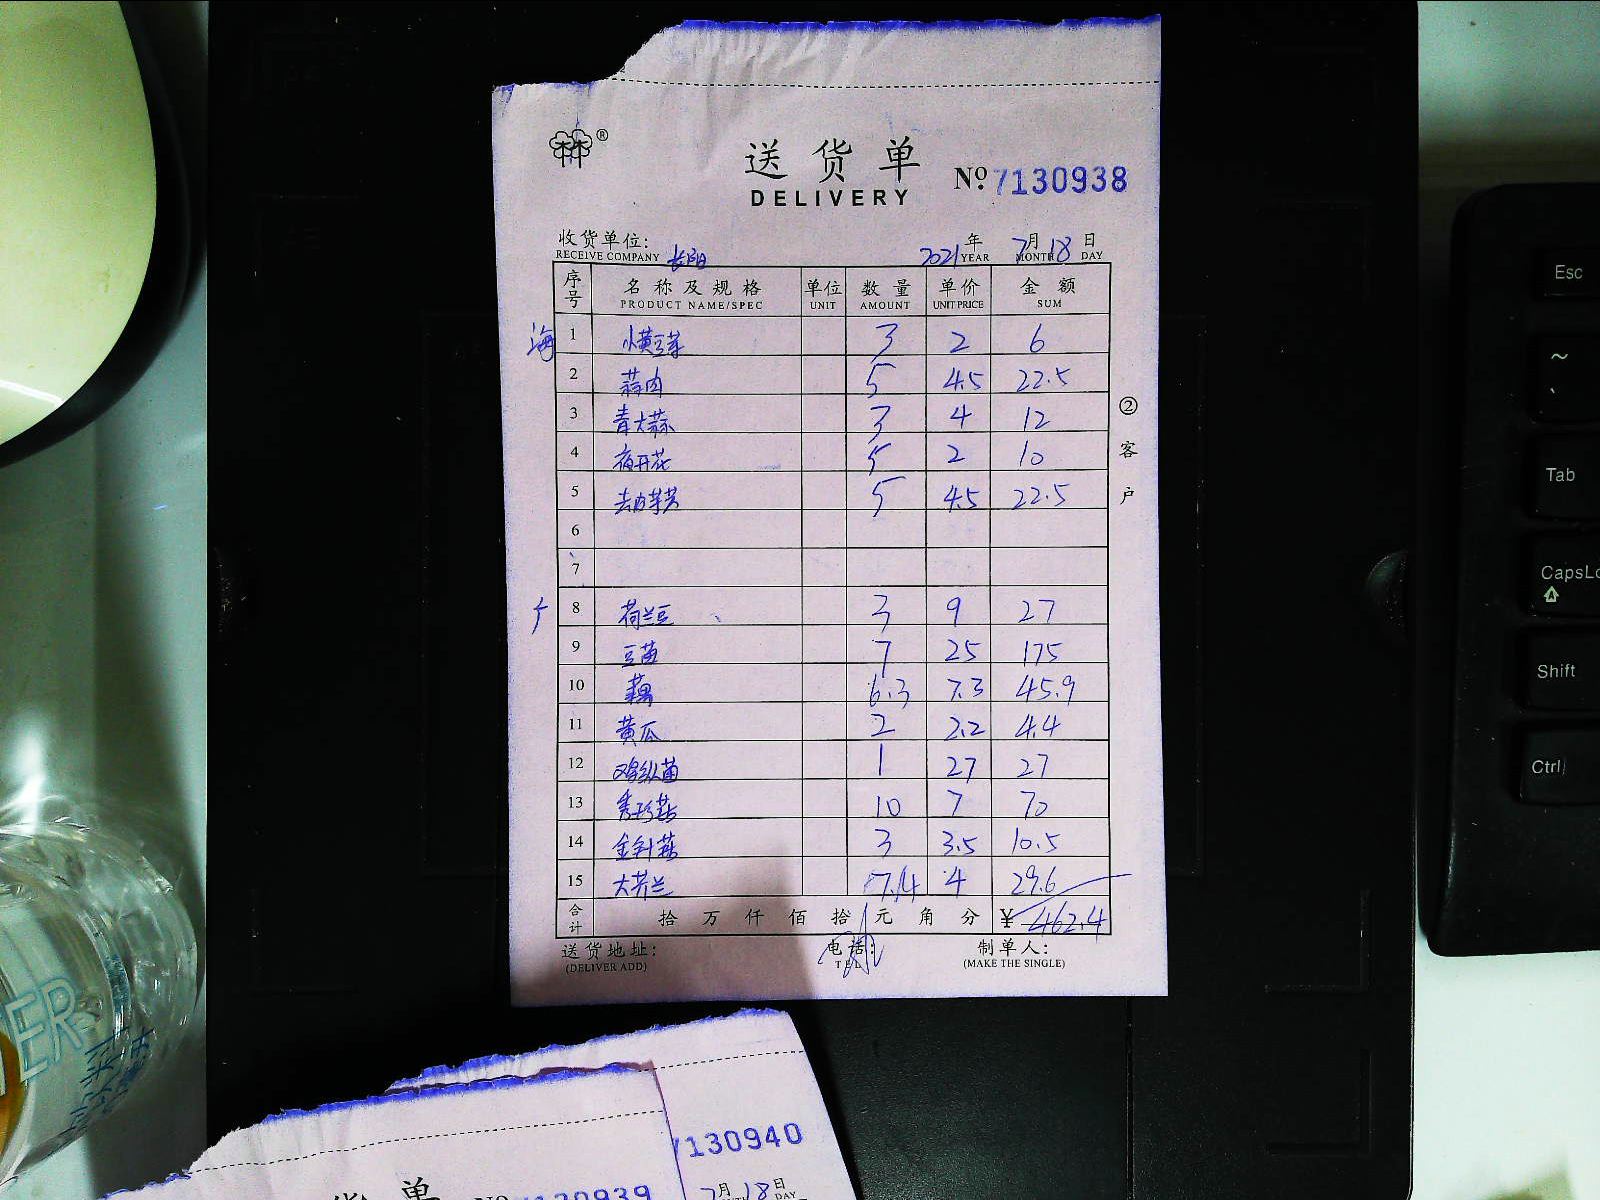 ®
送货单
DELIVERY
№ 7130938
收货单位: 长阳 2021年 7月 18日
RECEIVE COMPANY YEAR MONTH DAY
序号 名称及规格 单位 数量 单价 金额
PRODUCT NAME/SPEC UNIT AMOUNT UNIT PRICE SUM
海 1 小黄豆芽 3 2 6
2 蒜肉 5 4.5 22.5
3 青大蒜 3 4 12
4 夜开花 5 2 10
5 去皮芋艿 5 4.5 22.5
6
7
8 荷兰豆 3 9 27
9 豆苗 7 25 175
10 藕 6.3 7.3 45.9
11 黄瓜 2 2.2 4.4
12 鸡纵菌 1 27 27
13 秀珍菇 10 7 70
14 金针菇 3 3.5 10.5
15 大芥兰 7.4 4 29.6
合计 拾 万 仟 佰 拾 元 角 分 ¥ 462.4
送货地址: 电话: 制单人:
(DELIVER ADD) TEL (MAKE THE SINGLE)
② 客户
Esc
~
、
Tab
CapsLo
Shift
Ctrl
ER
7130940
7月18日
DAY
货单 № 7130939